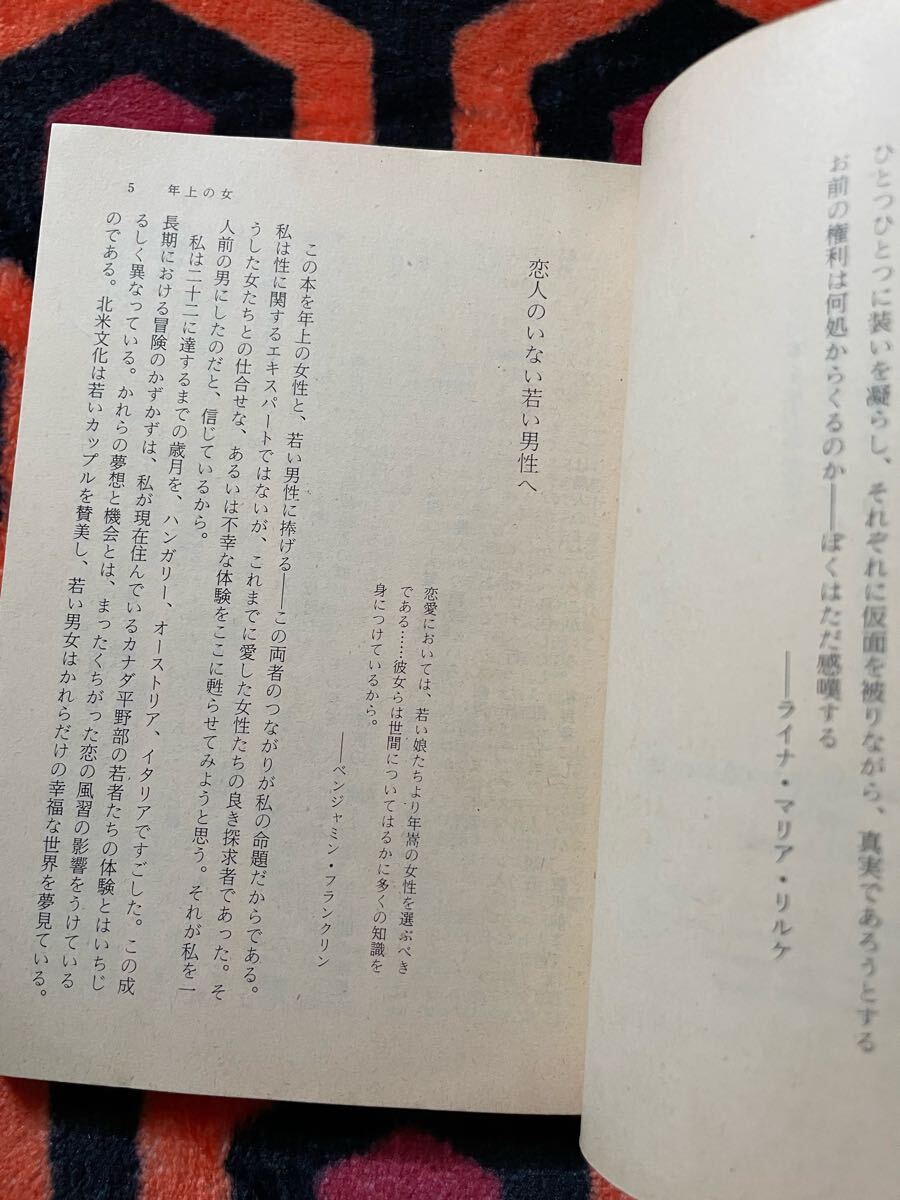 ひとつひとつに装いを凝らし、それぞれに仮面を被りながら、真実であろうとする
お前の権利は何処からくるのか――ぼくはただ感嘆する
――ライナ・マリア・リルケ
恋人のいない若い男性へ
恋愛においては、若い娘たちより年嵩の女性を選ぶべき
である……彼女らは世間についてはるかに多くの知識を
身につけているから。
――ベンジャミン・フランクリン
この本を年上の女性と、若い男性に捧げる――この両者のつながりが私の命題だからである。
私は性に関するエキスパートではないが、これまでに愛した女性たちの良き探求者であった。そ
うした女たちとの仕合せな、あるいは不幸な体験をここに甦らせてみようと思う。それが私を一
人前の男にしたのだと、信じているから。
私は二十二に達するまでの歳月を、ハンガリー、オーストリア、イタリアですごした。この成
長期における冒険のかずかずは、私が現在住んでいるカナダ平野部の若者たちの体験とはいちじ
るしく異なっている。かれらの夢想と機会とは、まったくちがった恋の風習の影響をうけている
のである。北米文化は若いカップルを賛美し、若い男女はかれらだけの幸福な世界を夢見ている。
5 年上の女